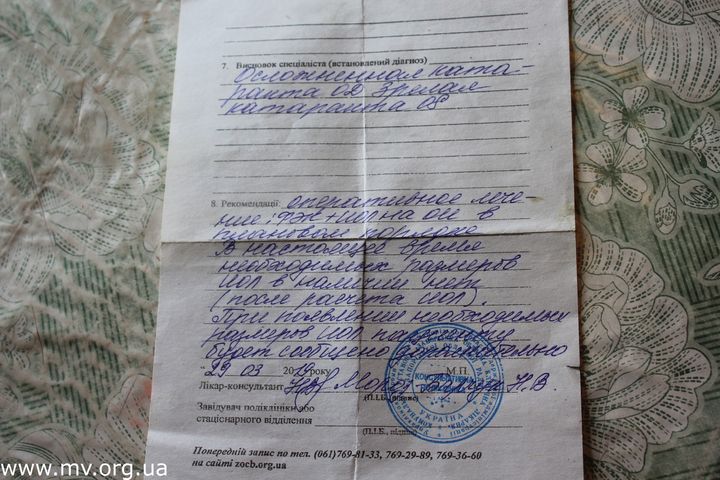 7. Висновок спеціаліста (встановлений діагноз)
Осложненная ката-
ракта OD Зрелая
катаракта OS
8. Рекомендації оперативное лече-
ние: ФЭК+ИОЛ на ОИ в
плановом порядке
В настоящее время
необходимых размеров
ИОЛ в наличии нет
(после расчета ИОЛ).
При появлении необходимых
размеров ИОЛ пациенту
будет сообщено дополнительно
"29 03 20 року М.П.
Лікар-консультант Н.В.
(П.І.Б., підпис)
Завідувач поліклініки або
стаціонарного відділення
(П.І.Б., підпис)
УКРАЇНА
Попередній запис по тел. (061)769-81-33, 769-29-89, 769-36-60
на сайті zocb.org.ua
www.mv.org.ua